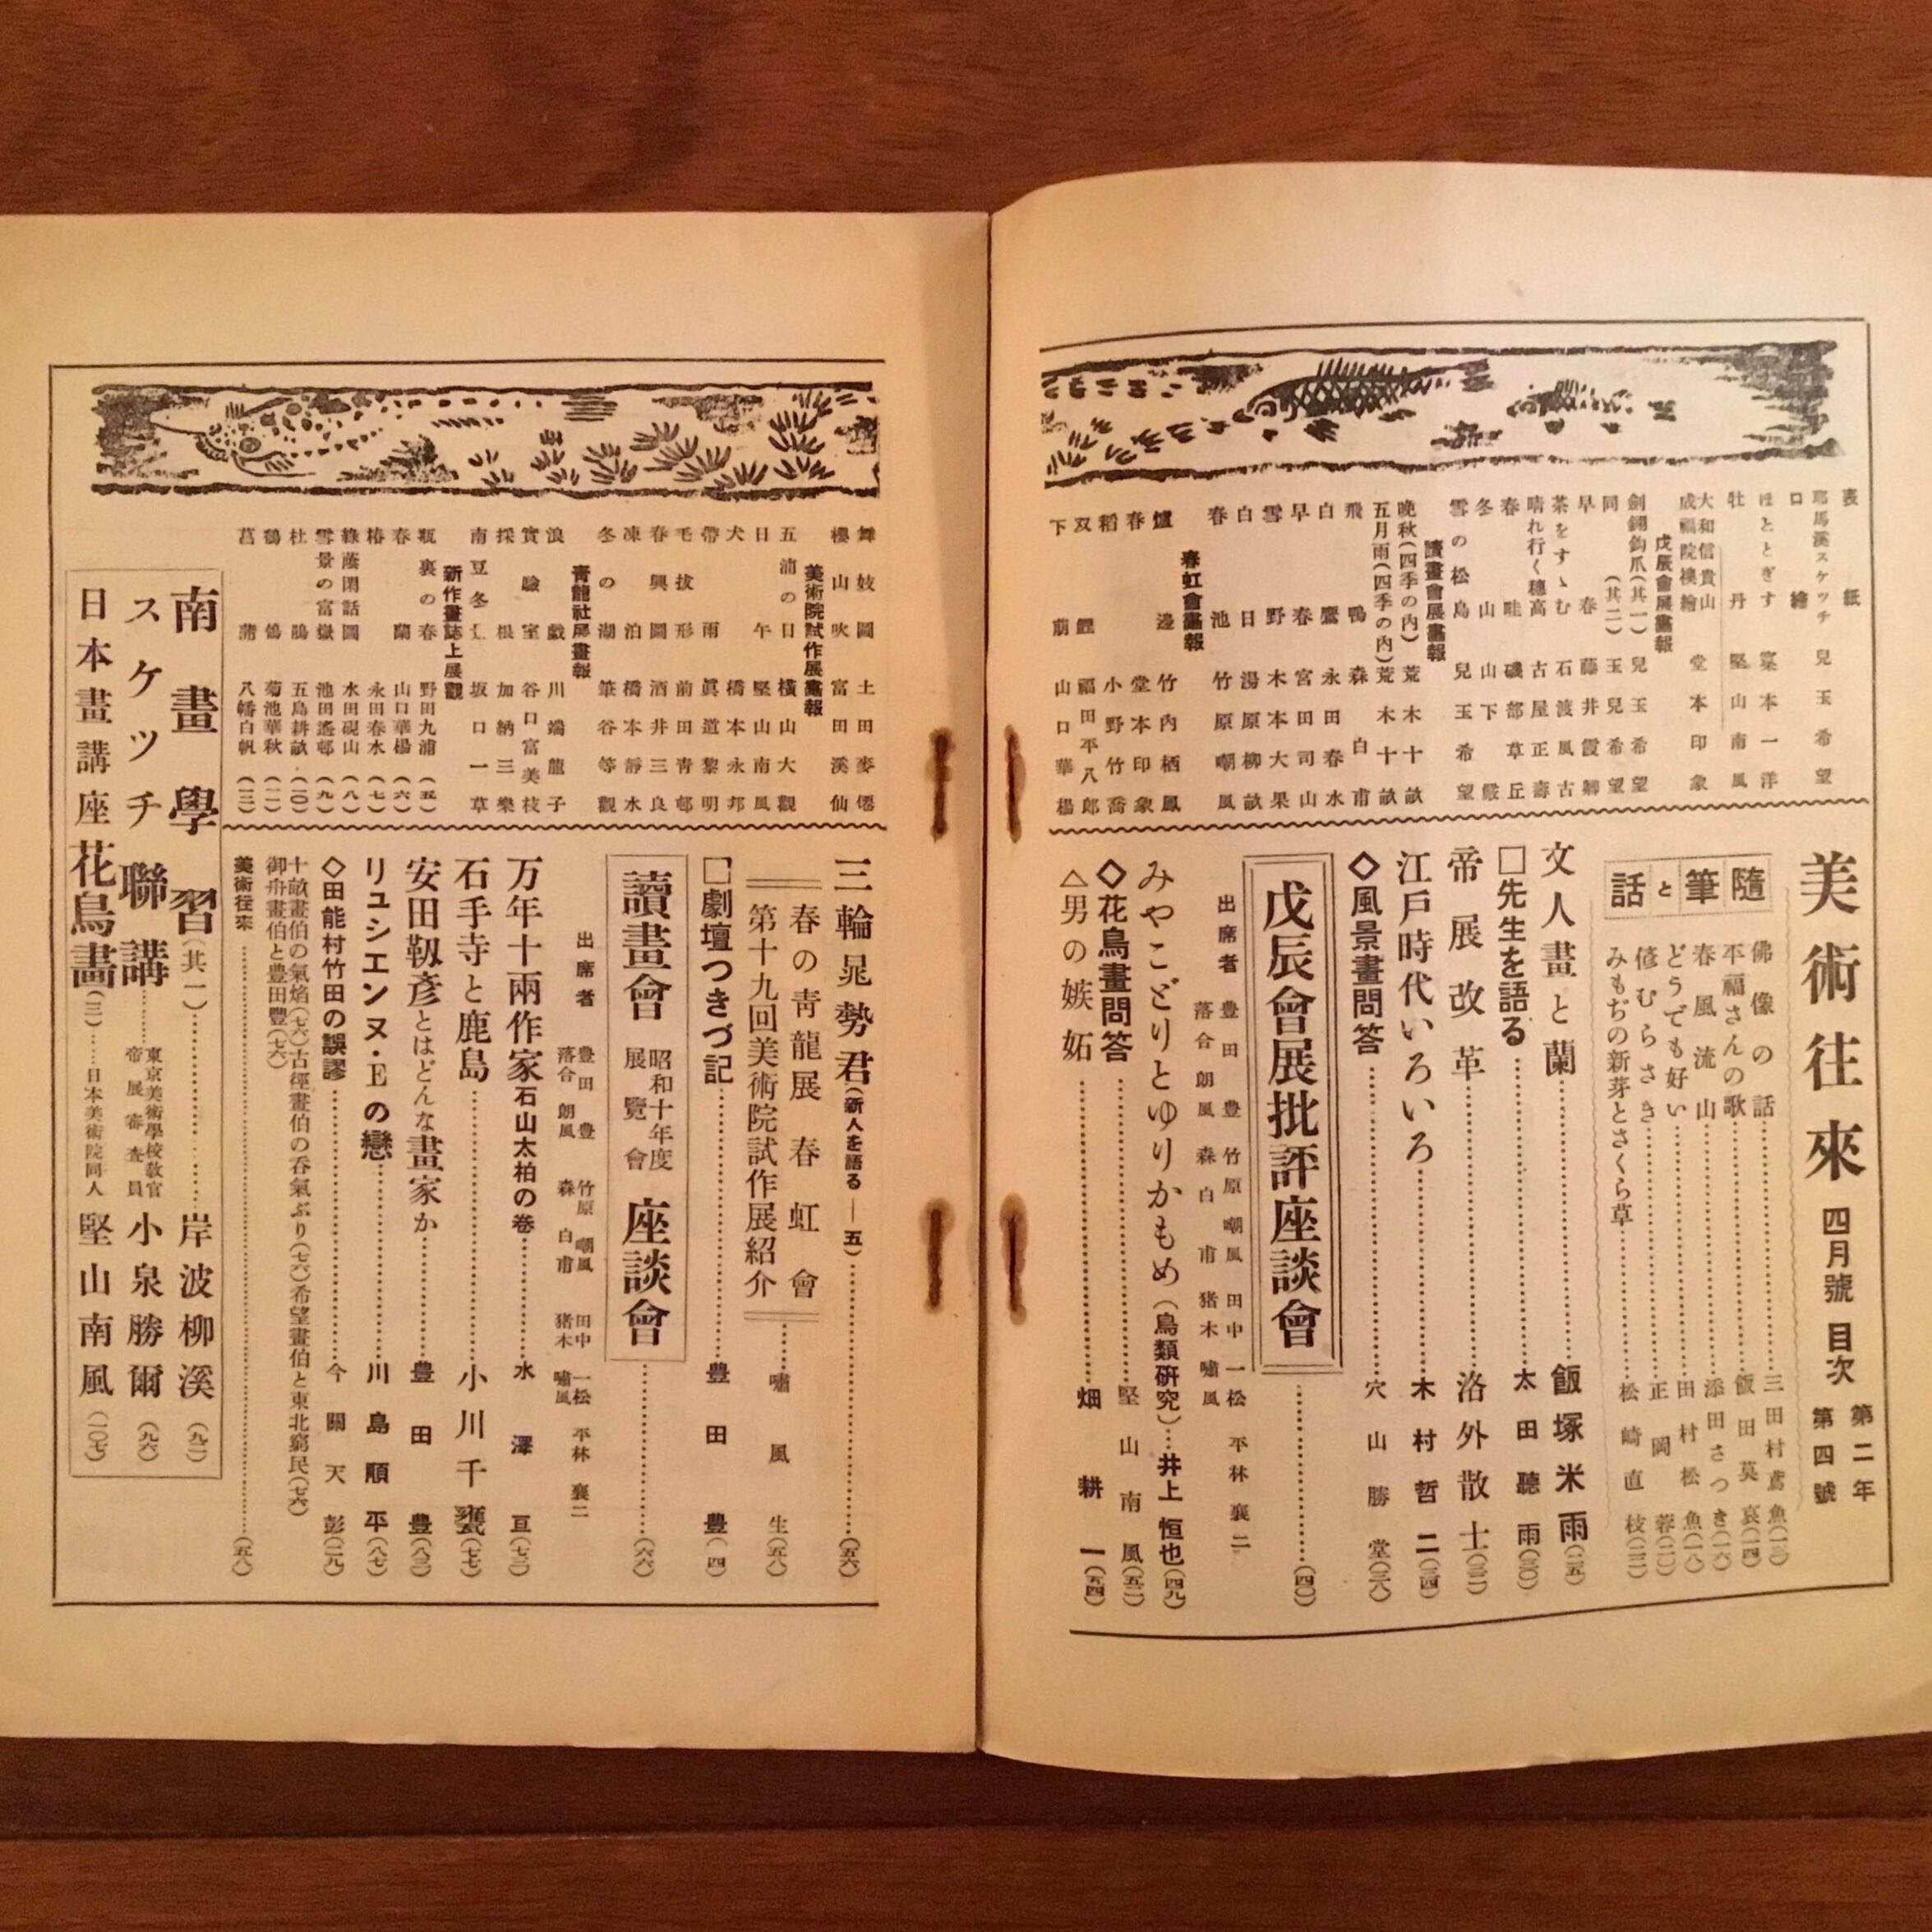 美術往來 四月號 目次
第二年
第四號
隨筆と話
佛像の話 三田村鳶魚(一二)
平福さんの歌 飯田莫哀(一四)
春風流山 添田さつき(一六)
どうでも好い 田村松魚(一八)
偐むらさき 正岡蓉(二〇)
みもぢの新芽とさくら草 松崎直枝(二二)
文人畫と蘭 飯塚米雨(二五)
□先生を語る 太田聽雨(三〇)
帝展改革 洛外散士(三二)
江戸時代いろいろ 木村哲二(三四)
◇風景畫問答 穴山勝堂(三八)
戊辰會展批評座談會 (四〇)
出席者
豊田豊 竹原嘲風 田中一松 平林襄二
落合朗風 森白甫 猪木嘯風
みやこどりとゆりかもめ(鳥類研究) 井上恒也(四九)
◇花鳥畫問答 堅山南風(五二)
△男の嫉妬 畑耕一(五四)
表紙
耶馬溪スケッチ 兒玉希望
口繪
ほとゝぎす 窪本一洋
牡丹 堅山南風
大和信貴山
成福院襖繪 堂本印象
戊辰會展畫報
劍錋鈎爪(其一) 兒玉希望
同(其二) 玉兒希望
早春 藤井霞鄕
茶をすゝむ 石渡風古
晴れ行く穗高 古屋正壽
春畦 磯部草丘
冬山 山下巖
雪の松島 兒玉希望
讀畫會展畫報
晩秋(四季の內) 荒木十畝
五月雨(四季の內) 荒木十畝
飛鴨 森白甫
白鷹 永田春水
早春 宮田司山
雪野 木本大果
白日 湯原柳畝
春池 竹原嘲風
春虹會畫報
爐邊 竹內栖鳳
春 堂本印象
稻 小野竹喬
双鯉 福田平八郎
下萠 山口華楊
三輪晁勢君(新人を語る―五) (五六)
春の靑龍展 春虹會
第十九回美術院試作展紹介 嘯風生(五八)
□劇壇つきづ記 豊田豊(四)
讀畫會 昭和十年度展覽會 座談會 (六六)
出席者
豊田豊 竹原嘲風 田中一松 平林襄二
落合朗風 森白甫 猪木嘯風
万年十兩作家 石山太柏の卷 水澤亘(七三)
石手寺と鹿島 小川千甕(七七)
安田靱彦とはどんな畫家か 豊田豊(八三)
リュシエンヌ・Eの戀 川島順平(八七)
◇田能村竹田の誤謬 今關天彭(二九)
十畝畫伯の氣焰(七六)古徑畫伯の呑氣ぶり(七六)希望畫伯と東北窮民(七六)
御舟畫伯と豊田豐(七六)
美術往來 (五八)
舞妓圖 土田麥僊
櫻山吹 富田溪仙
美術院試作展畫報
五浦の日 橫山大觀
日午 堅山南風
犬 橋本永邦
帶雨 眞道黎明
毛拔形 前田靑邨
春興圖 酒井三良
凍泊 橋本靜水
冬の湖 筆谷等觀
靑龍社展畫報
浪戲 川端龍子
實驗室 谷口富美枝
採根 加納三樂
南豆冬 坂口一草
新作畫誌上展觀
瓶裏の春 野田九浦(五)
春蘭 山口華楊(六)
椿 永田春水(七)
綠蔭閑話圖 水田硯山(八)
雪景の富嶽 池田遙邨(九)
杜鵑 五島耕畝(一〇)
鶺鴒 菊池華秋(一一)
菖蒲 八幡白帆(一二)
南畫學習(其一) 岸波柳溪(九二)
スケッチ聯講 東京美術學校敎官 帝展審査員 小泉勝爾(九六)
日本畫講座花鳥畫(三) 日本美術院同人 堅山南風(一〇七)